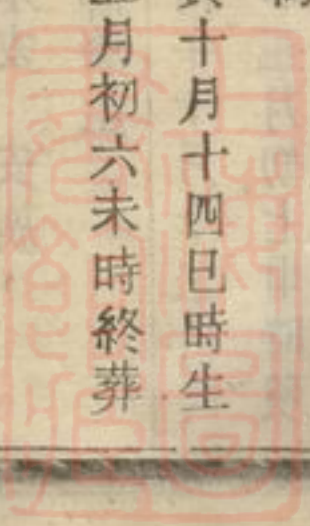 十月十四巳時生
月初六未時終葬